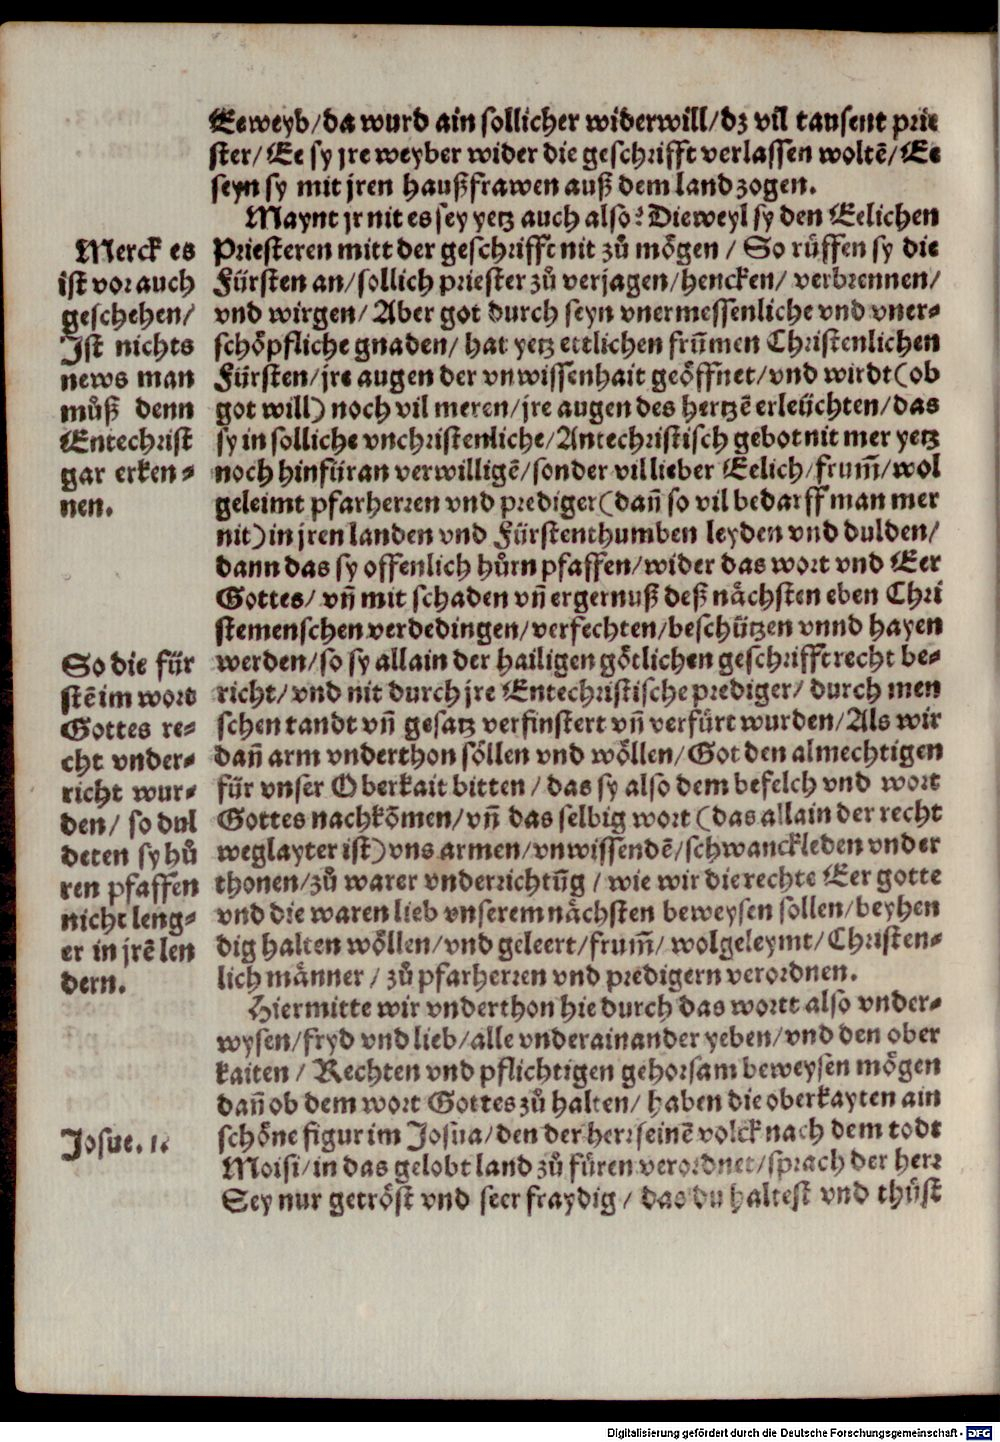 Eeweyb/da wurd ain sollicher widerwill/dz vil tausent prie
ster/ Ee sy jre weyber wider die geschrifft verlassen woltē/Ee
seyn sy mit jren haußfrawen auß dem land zogen.
Maynt jr nit es sey yetz auch also? Dieweyl sy den Eelichen
Priesteren mitt der geschrifft nit zů mögen / So růffen sy die
Fürsten an/sollich priester zů verjagen/hencken/ verbrennen/
vnd wirgen/ Aber got durch seyn vnermessenliche vnd vner-
schöpfliche gnaden/ hat yetz ettlichen frum̄en Christenlichen
Fürsten/jre augen der vnwissenhait geöffnet/vnd wirdt(ob
got will) noch vil meren/jre augen des hertzē erleüchten/das
sy in solliche vnchristenliche/Antechristisch gebot nit mer yetz
noch hinfüran verwilligē/sonder vil lieber Eelich/frum̄/wol
geleimt pfarherren vnd prediger(dan̄ so vil bedarff man mer
nit)in jren landen vnd Fürstenthumben leyden vnd dulden/
dann das sy offenlich hůrn pfaffen/wider das wort vnd Eer
Gottes/ vn̄ mit schaden vn̄ ergernuß deß nächsten eben Chri
stemenschen verdedingen/verfechten/beschützen vnnd hayen
werden/so sy allain der hailigen götlichen geschrifft recht be-
richt/ vnd nit durch jre Entechristische prediger/ durch men
schen tandt vn̄ gesatz verfinstert vn̄ verfürt wurden/Als wir
dan̄ arm vnderthon söllen vnd wöllen/Got den almechtigen
für vnser Oberkait bitten / das sy also dem befelch vnd wort
Gottes nachkōmen/vn̄ das selbig wort (das allain der recht
weglayter ist)vns armen/vnwissendē/schwanckleden vnder
thonen/zů warer vnderrichtūg / wie wir die rechte Eer gotte
vnd die waren lieb vnserem nächsten beweysen sollen/beyhen
dig halten wöllen/vnd geleert/frum̄/ wolgeleymt/Christen-
lich männer / zů pfarherren vnd predigern verordnen.
Hiermitte wir vnderthon hie durch das wortt also vnder-
wysen/fryd vnd lieb/alle vnderainander yeben/vnd den ober
kaiten / Rechten vnd pflichtigen gehorsam beweysen mögen
dan̄ ob dem wort Gottes zů halten/ haben die oberkayten ain
schöne figur im Josua/den der herr seinē volck nach dem todt
Moisi/in das gelobt land zů füren verordnet/sprach der herr
Sey nur getröst vnd seer fraydig / das du haltest vnd thüst
Merck es
ist vor auch
geschehen/
Ist nichts
news man
můß denn
Entechrist
gar erken-
nen.
So die für
stē im word
Gottes re-
cht vnder-
richt wur-
den/ so dul
deten sy hů
ren pfaffen
nicht leng-
er in jrē len
dern.
Josue. 1.
Digitalisierung gefördert durch die Deutsche Forschungsgemeinschaft - DFG